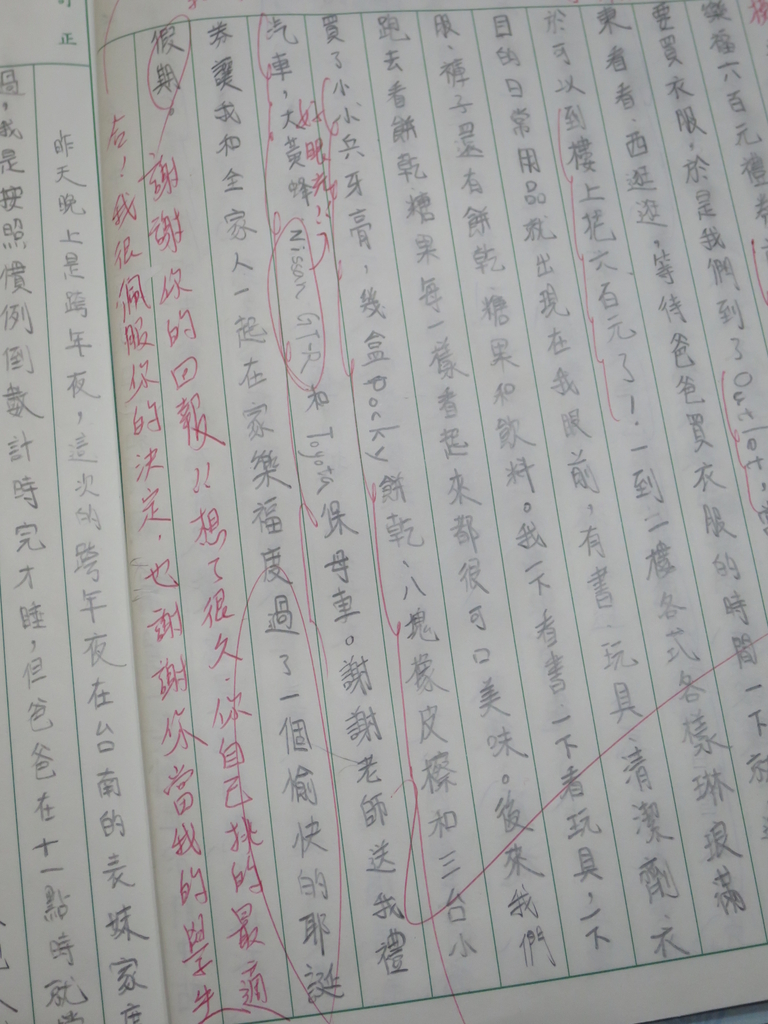 樂福六百元禮券
要買衣服,於是我們到了Outlet,當
東看看、西逛逛,等待爸爸買衣服的時間一下就
於可以到樓上把六百元了!一到二樓各式各樣琳琅滿
目的日常用品就出現在我眼前,有書、玩具、清潔劑、衣
服、褲子還有餅乾、糖果和飲料。我一下看書、一下看玩具,一下
跑去看餅乾、糖果每一樣看起來都很可口美味。後來我們
買了小小兵牙膏,幾盒Pocky餅乾、八塊橡皮擦和三台小
汽車,大黃蜂、Nissan GT-R和Toyota保母車。謝謝老師送我禮
好眼光!!
券讓我和全家人一起在家樂福度過了一個愉快的耶誕
假期。
謝謝你的回報!!想了很久,你自己挑的最適
合!我很佩服你的決定,也謝謝你當我的學生
訂正
昨天晚上是跨年夜,這次的跨年夜在台南的表妹家度
過,我是按照慣例倒數計時完才睡,但爸爸在十一點時就